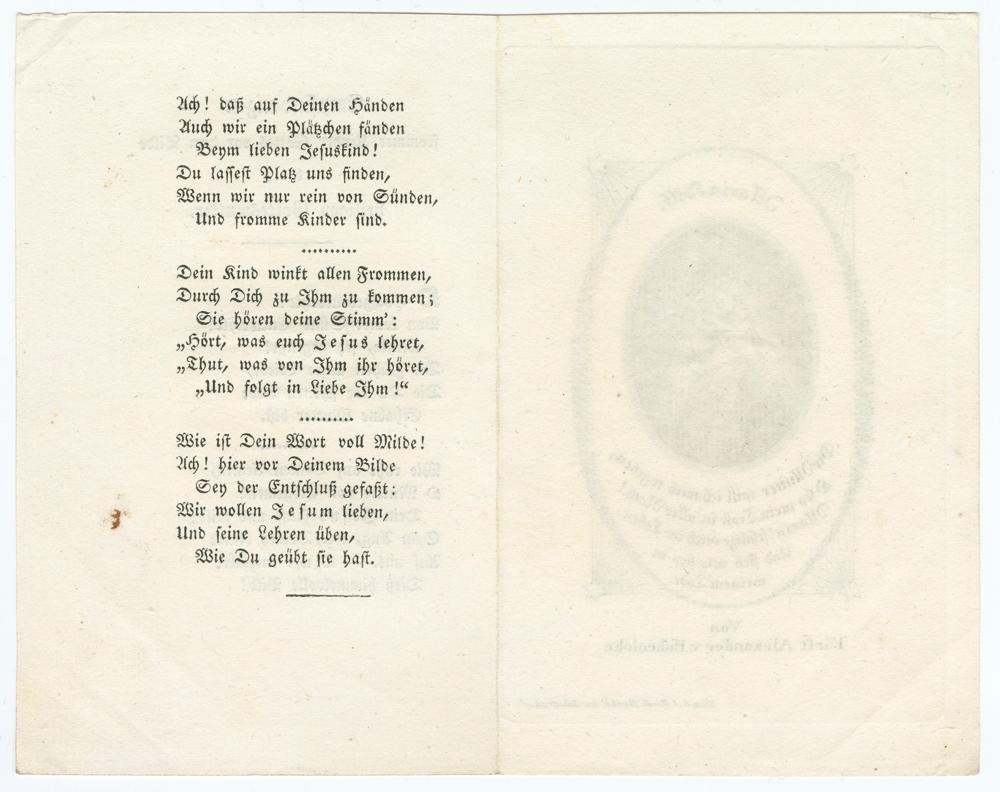 Ach! daß auf Deinen Händen
Auch wir ein Plätzchen fänden
Beym lieben Jesuskind!
Du lassest Platz uns finden,
Wenn wir nur rein von Sünden,
Und fromme Kinder sind.
Dein Kind winkt allen Frommen,
Durch Dich zu Ihm zu kommen;
Sie hören deine Stimm':
„Hört, was euch Jesus lehret,
„Thut, was von Ihm ihr höret,
„Und folgt in Liebe Ihm!“
Wie ist Dein Wort voll Milde!
Ach! hier vor Deinem Bilde
Sey der Entschluß gefaßt:
Wir wollen Jesum lieben,
Und seine Lehren üben,
Wie Du geübt sie hast.
Von
Fürst Alexander v. Hohenlohe